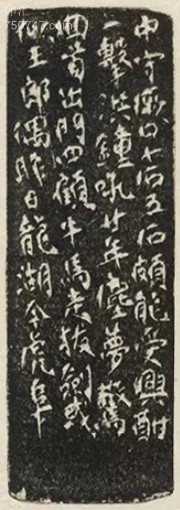 七石五石頗能受興酣
一擊洪鐘吼廿年塵夢驚
回首出門四顧牛馬走拔劍或
王郎偶昨日龍湖今虎阜